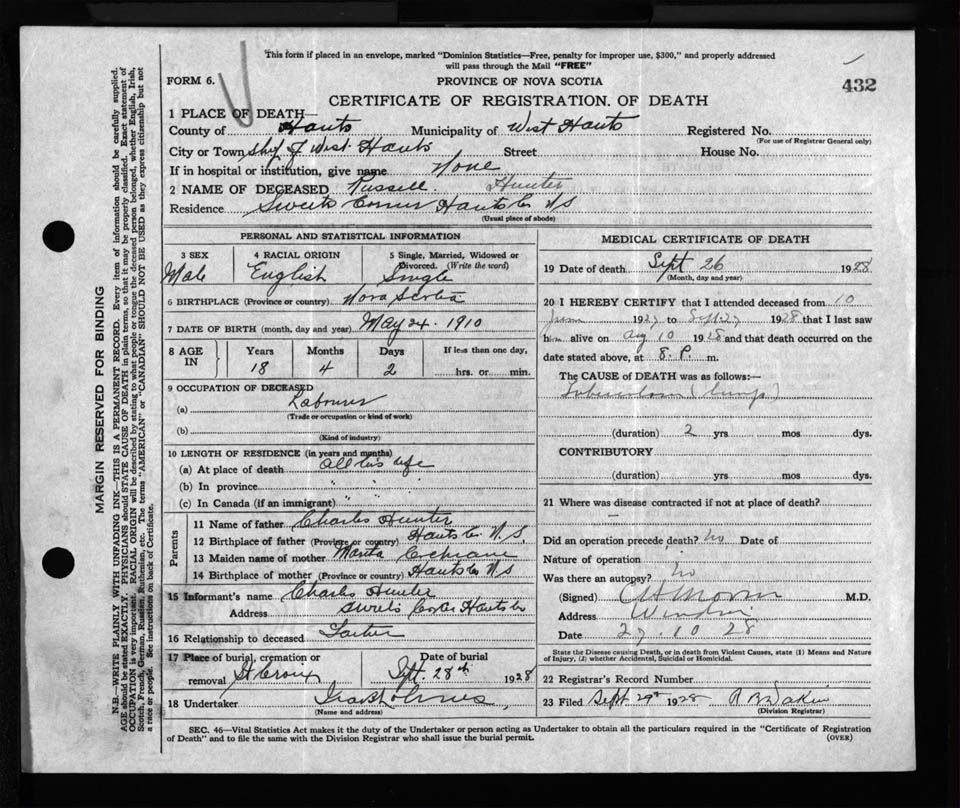 This form if placed in an envelope, marked "Dominion Statistics—Free, penalty for improper use, $300," and properly addressed
will pass through the Mail "FREE"
FORM 6.
PROVINCE OF NOVA SCOTIA
432
CERTIFICATE OF REGISTRATION. OF DEATH
1 PLACE OF DEATH—
County of Hants Municipality of West Hants Registered No.
(For use of Registrar General only)
City or Town of West Hants Street House No.
If in hospital or institution, give name None
2 NAME OF DECEASED Russell Hunter
Residence Sweets Corner Hants Co NS
(Usual place of abode)
PERSONAL AND STATISTICAL INFORMATION
3 SEX
Male
4 RACIAL ORIGIN
English
5 Single, Married, Widowed or
Divorced. (Write the word)
Single
6 BIRTHPLACE (Province or country) Nova Scotia
7 DATE OF BIRTH (month, day and year) May 24. 1910
8 AGE IN
Years
18
Months
4
Days
2
If less than one day,
hrs. or min.
9 OCCUPATION OF DECEASED
(a) Labourer
(Trade or occupation or kind of work)
(b)
(Kind of industry)
10 LENGTH OF RESIDENCE (in years and months)
(a) At place of death All his life
(b) In province " "
(c) In Canada (if an immigrant) " "
Parents
11 Name of father Charles Hunter
12 Birthplace of father (Province or country) Hants Co. N.S.
13 Maiden name of mother Cochrane
14 Birthplace of mother (Province or country) Hants Co NS
15 Informant's name Charles Hunter
Address Sweets Corner Hants Co
16 Relationship to deceased Father
17 Place of burial, cremation or
removal St Croix
Date of burial
Sept. 28th 1928
18 Undertaker
(Name and address)
MEDICAL CERTIFICATE OF DEATH
19 Date of death Sept 26 1928
(Month, day and year)
20 I HEREBY CERTIFY that I attended deceased from 10
June 1927 to Sept 27 1928 that I last saw
him alive on Aug 10 1928 and that death occurred on the
date stated above, at 8. P. m.
The CAUSE of DEATH was as follows:—
Tuberculosis (lungs)
(duration) 2 yrs mos dys.
CONTRIBUTORY
(duration) yrs mos dys.
21 Where was disease contracted if not at place of death?
—
Did an operation precede death? No Date of
Nature of operation
Was there an autopsy? No
(Signed) M.D.
Address Windsor
Date 27. 10 28
State the Disease causing Death, or in death from Violent Causes, state (1) Means and Nature
of Injury, (2) whether Accidental, Suicidal or Homicidal.
22 Registrar's Record Number
23 Filed Sept 29th 1928
(Division Registrar)
SEC. 46—Vital Statistics Act makes it the duty of the Undertaker or person acting as Undertaker to obtain all the particulars required in the "Certificate of Registration
of Death" and to file the same with the Division Registrar who shall issue the burial permit.
(OVER)
MARGIN RESERVED FOR BINDING
N.B.—WRITE PLAINLY WITH UNFADING INK—THIS IS A PERMANENT RECORD. Every item of information should be carefully supplied.
AGE should be stated EXACTLY. PHYSICIANS should STATE CAUSE OF DEATH in plain terms, so that it may be properly classified. Exact statement of
OCCUPATION is very important. RACIAL ORIGIN will be described by stating to what people or tongue the deceased person belonged, whether English, Irish,
Scotch, French, German, Russian, Ruthenian, etc. The terms "AMERICAN" or "CANADIAN" SHOULD NOT BE USED as they express citizenship but not
a race or people. See instructions on back of Certificate.